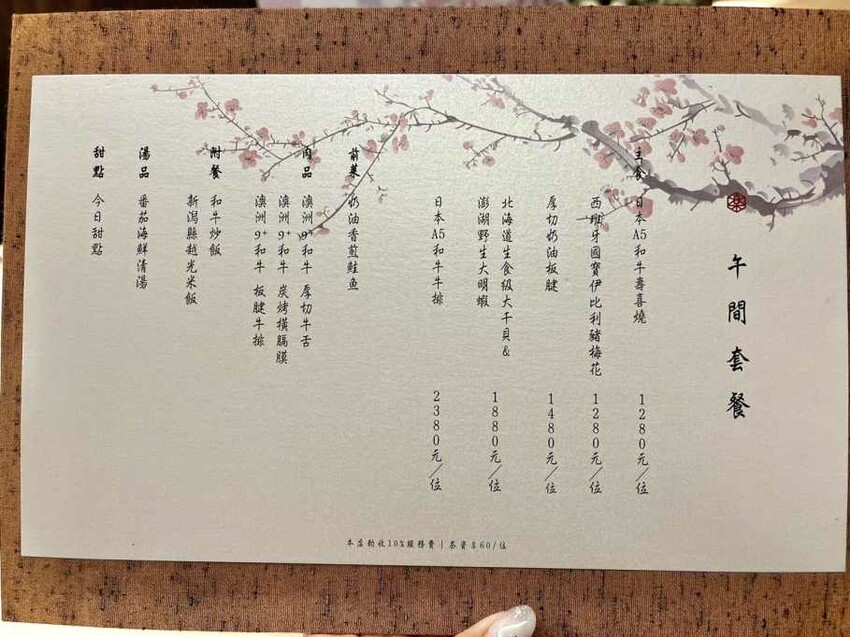 午間套餐
主食 日本A5和牛壽喜燒 1280元/位
西班牙國寶伊比利豬梅花 1280元/位
厚切奶油板腱 1480元/位
北海道生食級大干貝&
澎湖野生大明蝦 1880元/位
日本A5和牛牛排 2380元/位
前菜 奶油香煎鮭魚
肉品 澳洲9+和牛 厚切牛舌
澳洲9+和牛 炭烤橫膈膜
澳洲9+和牛 板腱牛排
附餐 和牛炒飯
新潟縣越光米飯
湯品 番茄海鮮清湯
甜點 今日甜點
本店酌收10%服務費 | 茶資$60/位